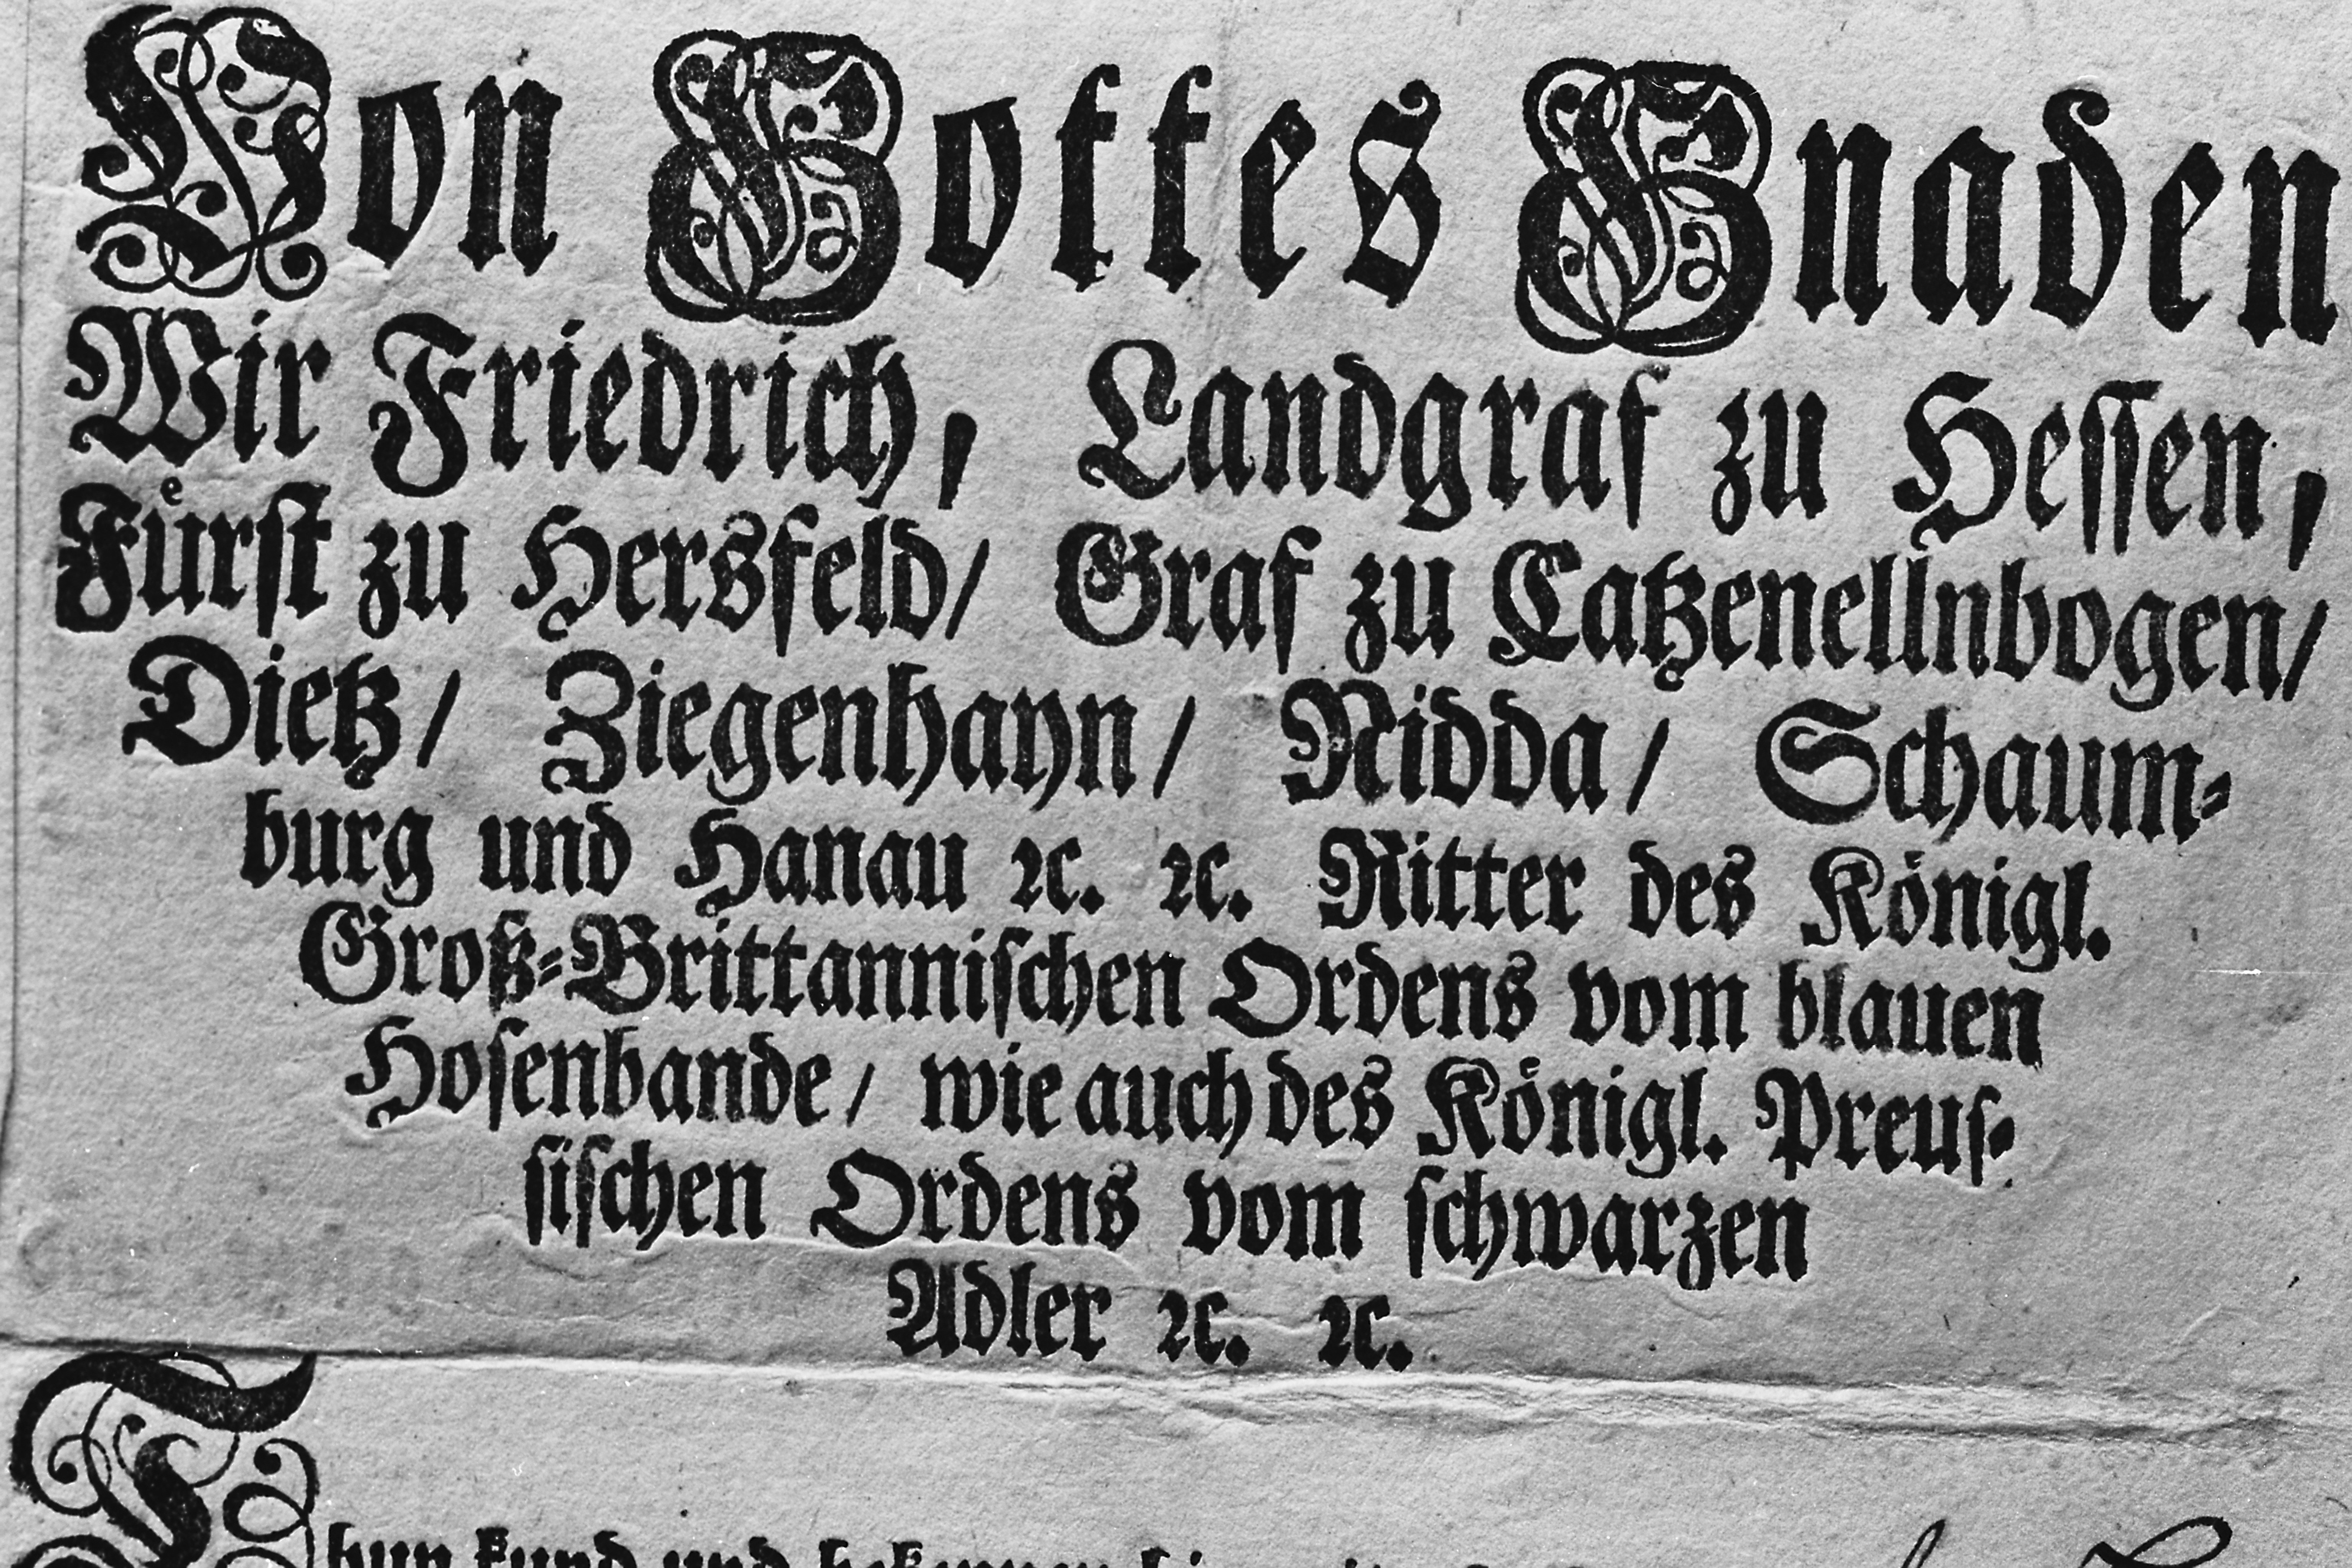 Von Gottes Gnaden
Wir Friedrich, Landgraf zu Hessen,
Fürst zu Hersfeld/ Graf zu Catzenellnbogen/
Dietz/ Ziegenhayn/ Nidda/ Schaum⸗
burg und Hanau ꝛc. ꝛc. Ritter des Königl.
Groß⸗Brittannischen Ordens vom blauen
Hosenbande/ wie auch des Königl. Preus⸗
sischen Ordens vom schwarzen
Adler ꝛc. ꝛc.
Thun kund und bekennen hiermit